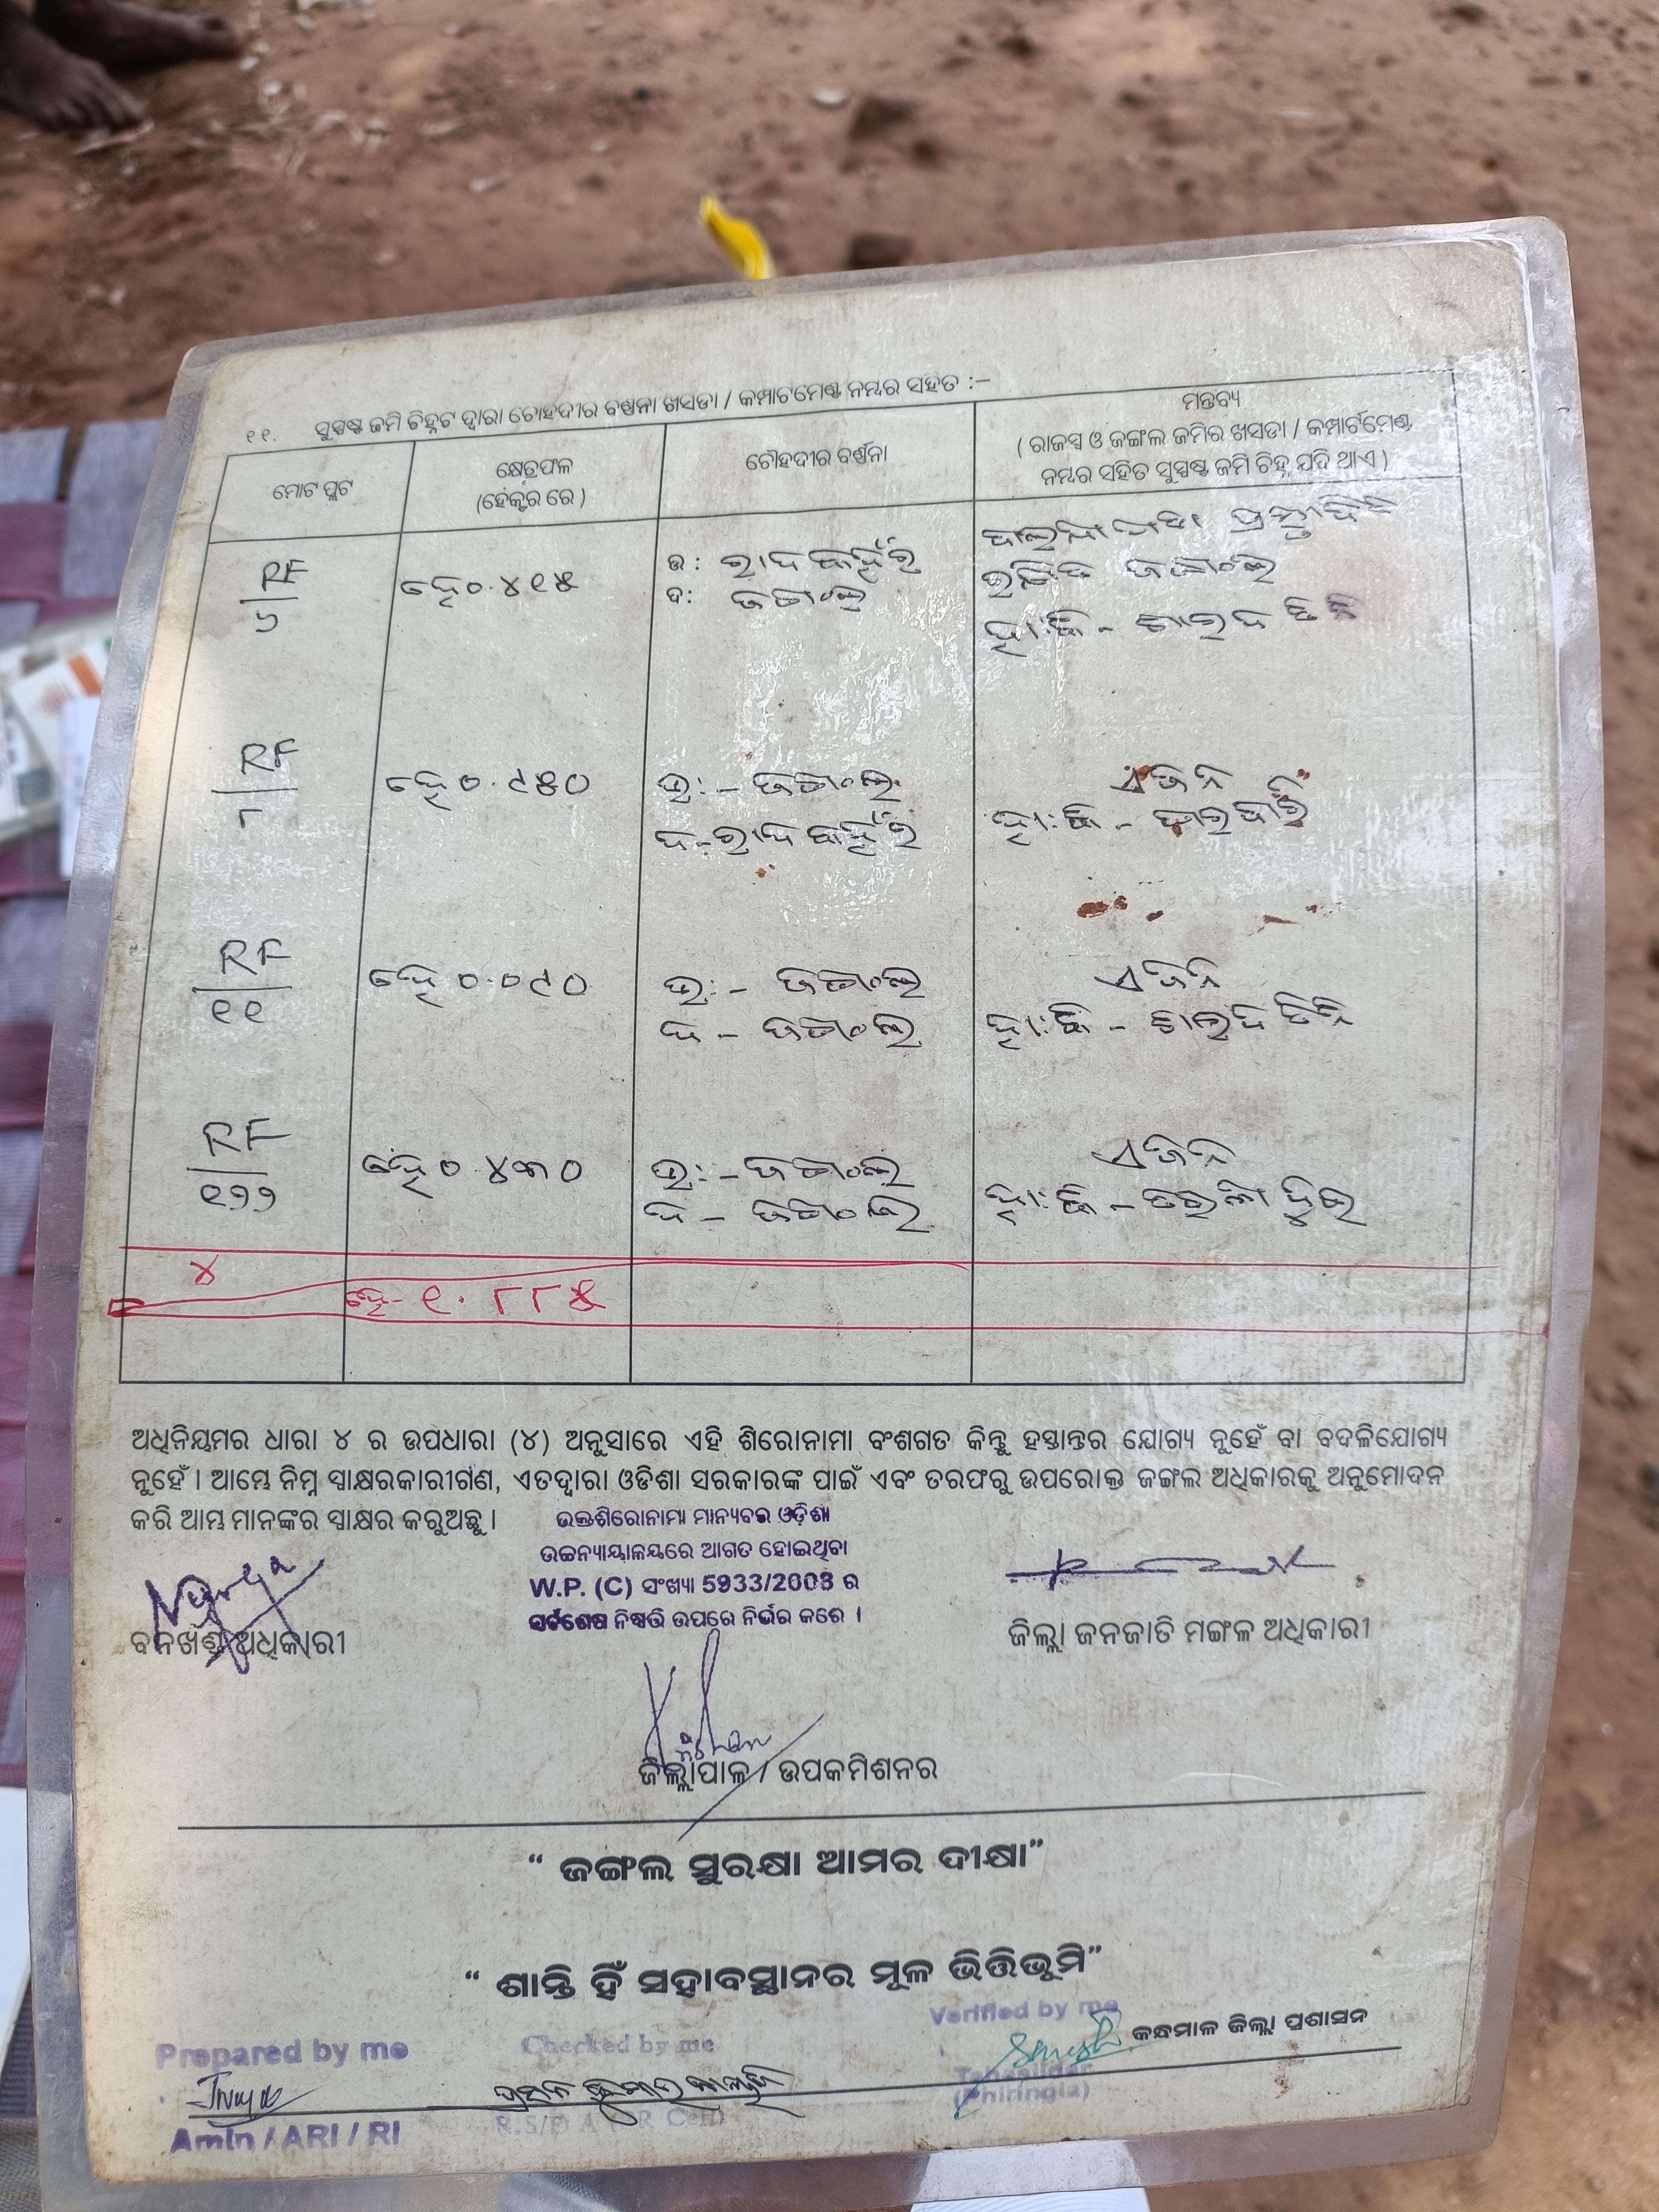 ୧୧. ସୁସ୍ପଷ୍ଟ ଜମି ଚିହ୍ନଟ ଦ୍ୱାରା ଚୌହଦୀର ବର୍ଣ୍ଣନା ଖସଡା / କମ୍ପାର୍ଟମେଣ୍ଟ ନମ୍ବର ସହିତ :–
ମୋଟ ପ୍ଲଟ
କ୍ଷେତ୍ରଫଳ
(ହେକ୍ଟର ରେ)
ଚୌହଦୀର ବର୍ଣ୍ଣନା
ମନ୍ତବ୍ୟ
( ରାଜସ୍ୱ ଓ ଜଙ୍ଗଲ ଜମିର ଖସଡା / କମ୍ପାର୍ଟମେଣ୍ଟ
ନମ୍ବର ସହିତ ସୁସ୍ପଷ୍ଟ ଜମି ଚିହ୍ନ ଯଦି ଥାଏ )
RF
୬
ହେ ୦.୪୧୫
ଉ :
ଦ : ଜଙ୍ଗଲ
ଜଙ୍ଗଲ
RF
୮
ହେ ୦.୯୫୦
ଉ: - ଜଙ୍ଗଲ
ଦ -
ଏଜିନି
RF
୧୧
ହେ ୦.୦୯୦
ଉ: - ଜଙ୍ଗଲ
ଦ - ଜଙ୍ଗଲ
ଏଜିନି
RF
୧୨୨
ହେ ୦.୪୩୦
ଉ: - ଜଙ୍ଗଲ
ଦ - ଜଙ୍ଗଲ
ଏଜିନି
୪
ହେ- ୧.୮୮୫
ଅଧିନିୟମର ଧାରା ୪ ର ଉପଧାରା (୪) ଅନୁସାରେ ଏହି ଶିରୋନାମା ବଂଶଗତ କିନ୍ତୁ ହସ୍ତାନ୍ତର ଯୋଗ୍ୟ ନୁହେଁ ବା ବଦଳିଯୋଗ୍ୟ
ନୁହେଁ । ଆମ୍ଭେ ନିମ୍ନ ସ୍ୱାକ୍ଷରକାରୀଗଣ, ଏତଦ୍ୱାରା ଓଡିଶା ସରକାରଙ୍କ ପାଇଁ ଏବଂ ତରଫରୁ ଉପରୋକ୍ତ ଜଙ୍ଗଲ ଅଧିକାରକୁ ଅନୁମୋଦନ
କରି ଆମ୍ଭ ମାନଙ୍କର ସ୍ୱାକ୍ଷର କରୁଅଛୁ ।
ଉକ୍ତଶିରୋନାମା ମାନ୍ୟବର ଓଡ଼ିଶା
ଉଚ୍ଚନ୍ୟାୟାଳୟରେ ଆଗତ ହୋଇଥିବା
W.P. (C) ସଂଖ୍ୟା 5933/2008 ର
ସର୍ବଶେଷ ନିଷ୍ପତ୍ତି ଉପରେ ନିର୍ଭର କରେ ।
ବନଖଣ୍ଡ ଅଧିକାରୀ
ଜିଲ୍ଲା ଜନଜାତି ମଙ୍ଗଳ ଅଧିକାରୀ
ଜିଲ୍ଲାପାଳ / ଉପକମିଶନର
“ ଜଙ୍ଗଲ ସୁରକ୍ଷା ଆମର ଦୀକ୍ଷା”
“ ଶାନ୍ତି ହିଁ ସହାବସ୍ଥାନର ମୂଳ ଭିତ୍ତିଭୂମି”
Prepared by me
Checked by me
Verified by me
କନ୍ଧମାଳ ଜିଲ୍ଲା ପ୍ରଶାସନ
Tahasildar
(Phiringia)
Amin / ARI / RI